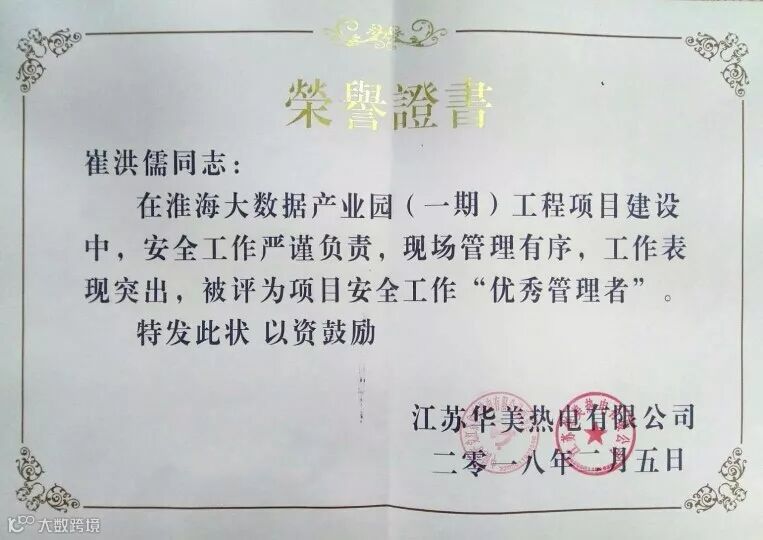 榮譽證書
崔洪儒同志：
在淮海大数据产业园（一期）工程项目建设
中，安全工作严谨负责，现场管理有序，工作表
现突出，被评为项目安全工作“优秀管理者”。
特发此状 以资鼓励
江苏华美热电有限公司
二零一八年二月五日
大数跨境